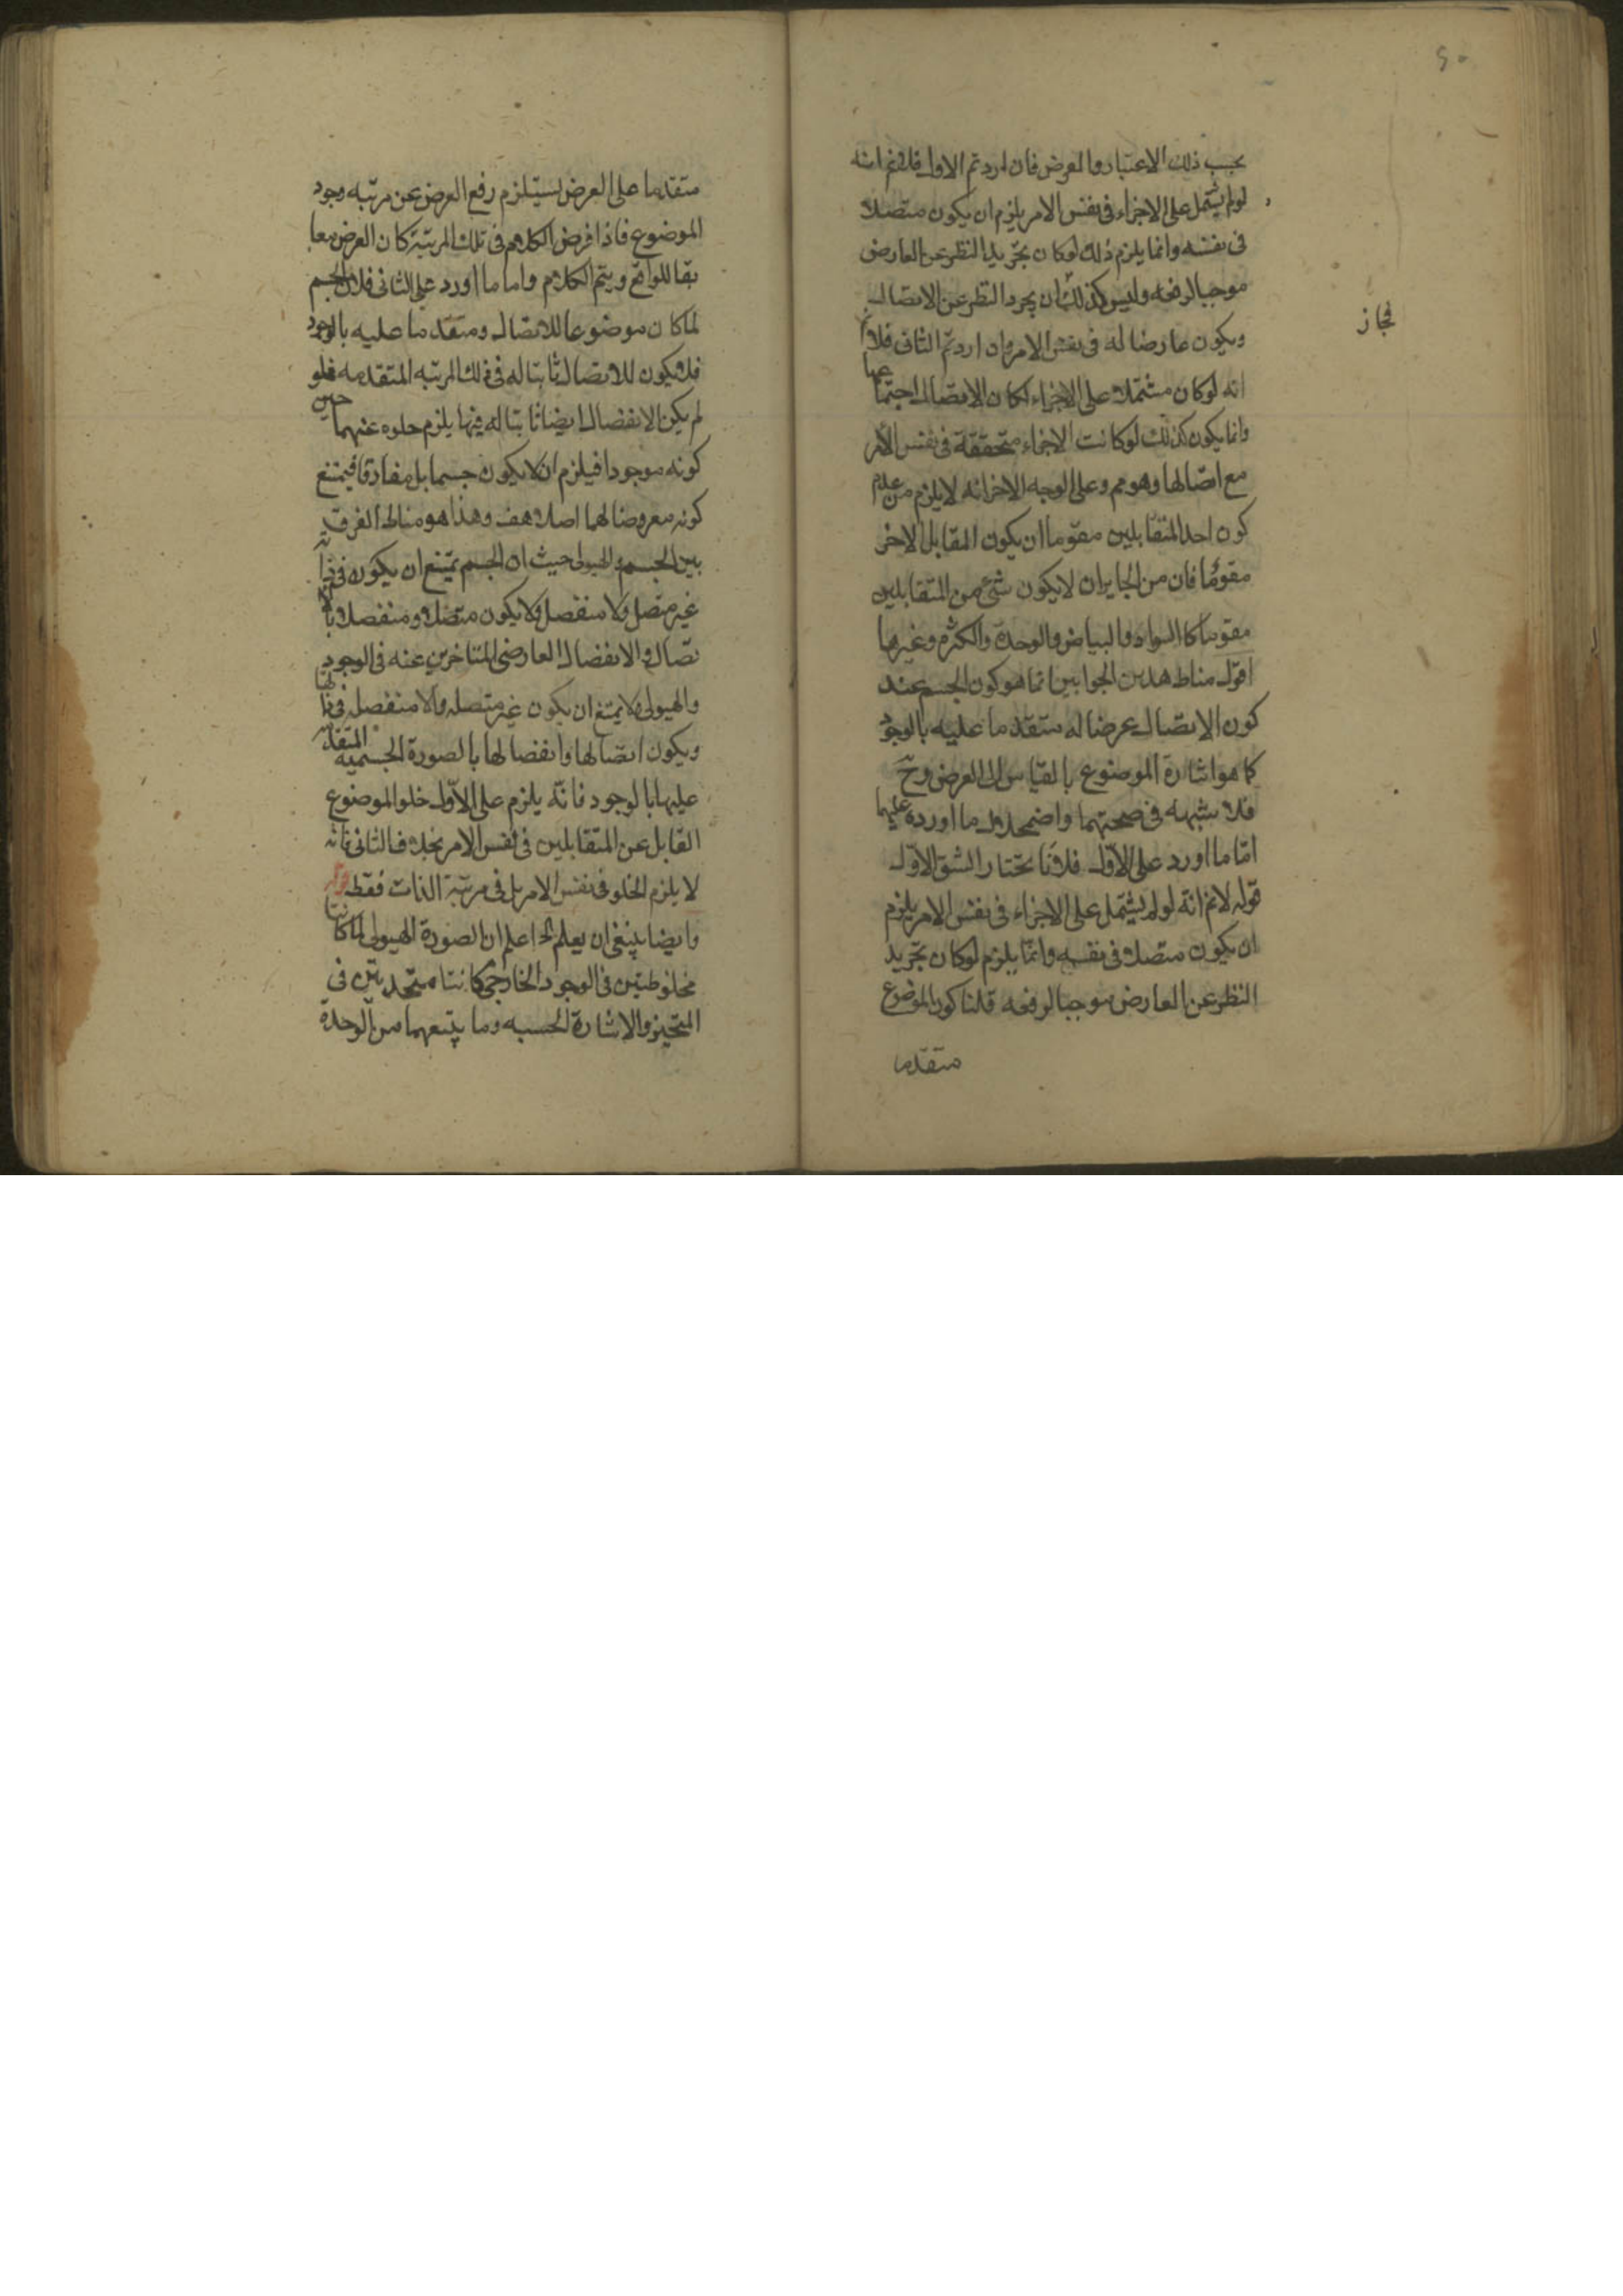 بحسب ذلك الاعتبار والعرض فان اردتم الاول فلانم انه
لو لم يشتمل على الاجزاء فى نفس الامر يلزم ان يكون متصلا
فى نفسه وانما يلزم ذلك لو كان تجريد النظر عن العارض
موجبا لرفعه وليس كذلك ان يجرد النظر عن الاتصال
فجاز
ويكون عارضا له فى نفس الامر وان اردتم الثانى فلانم
انه لو كان مشتملا على الاجزاء لكان الاتصال اجتماعيا
وانما يكون كذلك لو كانت الاجزاء متحققة فى نفس الامر
مع اتصالها وهو مم وعلى الوجه الاخر انه لا يلزم من عدم
كون احد المتقابلين مقوما ان يكون المقابل الاخر
مقوما فان من الجايز ان لا يكون شئ من المتقابلين
مقوما كالسواد والبياض والوحدة والكثرة وغيرها
اقول مناط هذين الجوابين انما هو كون الجسم عند
كون الاتصال عرضا له متقدما عليه بالوجود
كما هو شارة الموضوع بالقياس الى العرض وح
فلا شبهه فى صحتهما واضمحلال ما اورده عليهما
اما ما اورد على الاول فلانا نختار الشق الاول
قوله لانم انه لو لم يشتمل على الاجزاء فى نفس الامر يلزم
ان يكون متصلا فى نفسه وانما يلزم لو كان تجريد
النظر عن العارض موجبا لرفعه قلنا كون الموضوع
متقدما
متقدما على العرض يستلزم رفع العرض عن مرتبه وجود
الموضوع فاذا فرض الكلام فى تلك المرتبة كان العرض معا
بقا للواقع ويتم الكلام واما ما اورد على الثانى فلان الجسم
لما كان موضوعا للاتصال ومتقدما عليه بالوجود
فلا يكون للاتصال ثابتا له فى ذلك المرتبه المتقدمه فلو
لم يكن الانفصال ايضا ثابتا له فيها يلزم خلوه عنهما حين
كونه موجودا فيلزم ان لا يكون جسما بل مفارقا فيمتنع
كونه معروضا لهما اصلا هف وهذا هو مناط الفرق
بين الجسم والهيولى حيث ان الجسم يمتنع ان يكون فى ذاته
غير متصل ولا منفصل ولا يكون متصلا ومنفصلا بالا
تصال والانفصال العارضى المتاخرين عنه فى الوجود
والهيولى لا يمتنع ان يكون غير متصله ولا منفصله فى ذاتها
ويكون اتصالها وانفصالها بالصورة الجسميه المتقدمة
عليها بالوجود فانه يلزم على الاول خلو الموضوع
القابل عن المتقابلين فى نفس الامر بخلاف الثانى فانه
لا يلزم الخلو فى نفس الامر بل فى مرتبة الذات فقط قوله
وايضا ينبغى ان يعلم الخ اعلم ان الصورة الهيولى لما كانتا
مخلوطتين فى الوجود الخارجى كانتا متحدتين فى
المتحيز والاشارة الحسيه وما يتبعهما من الوحدة